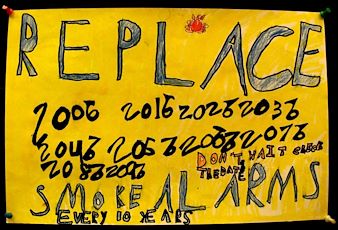 REPLACE
2006 2016 2026 2036
2046 2056 2066 2076
2086 2096
DON'T WAIT CHECK
THE DATE
SMOKE ALARMS
EVERY 10 YEARS